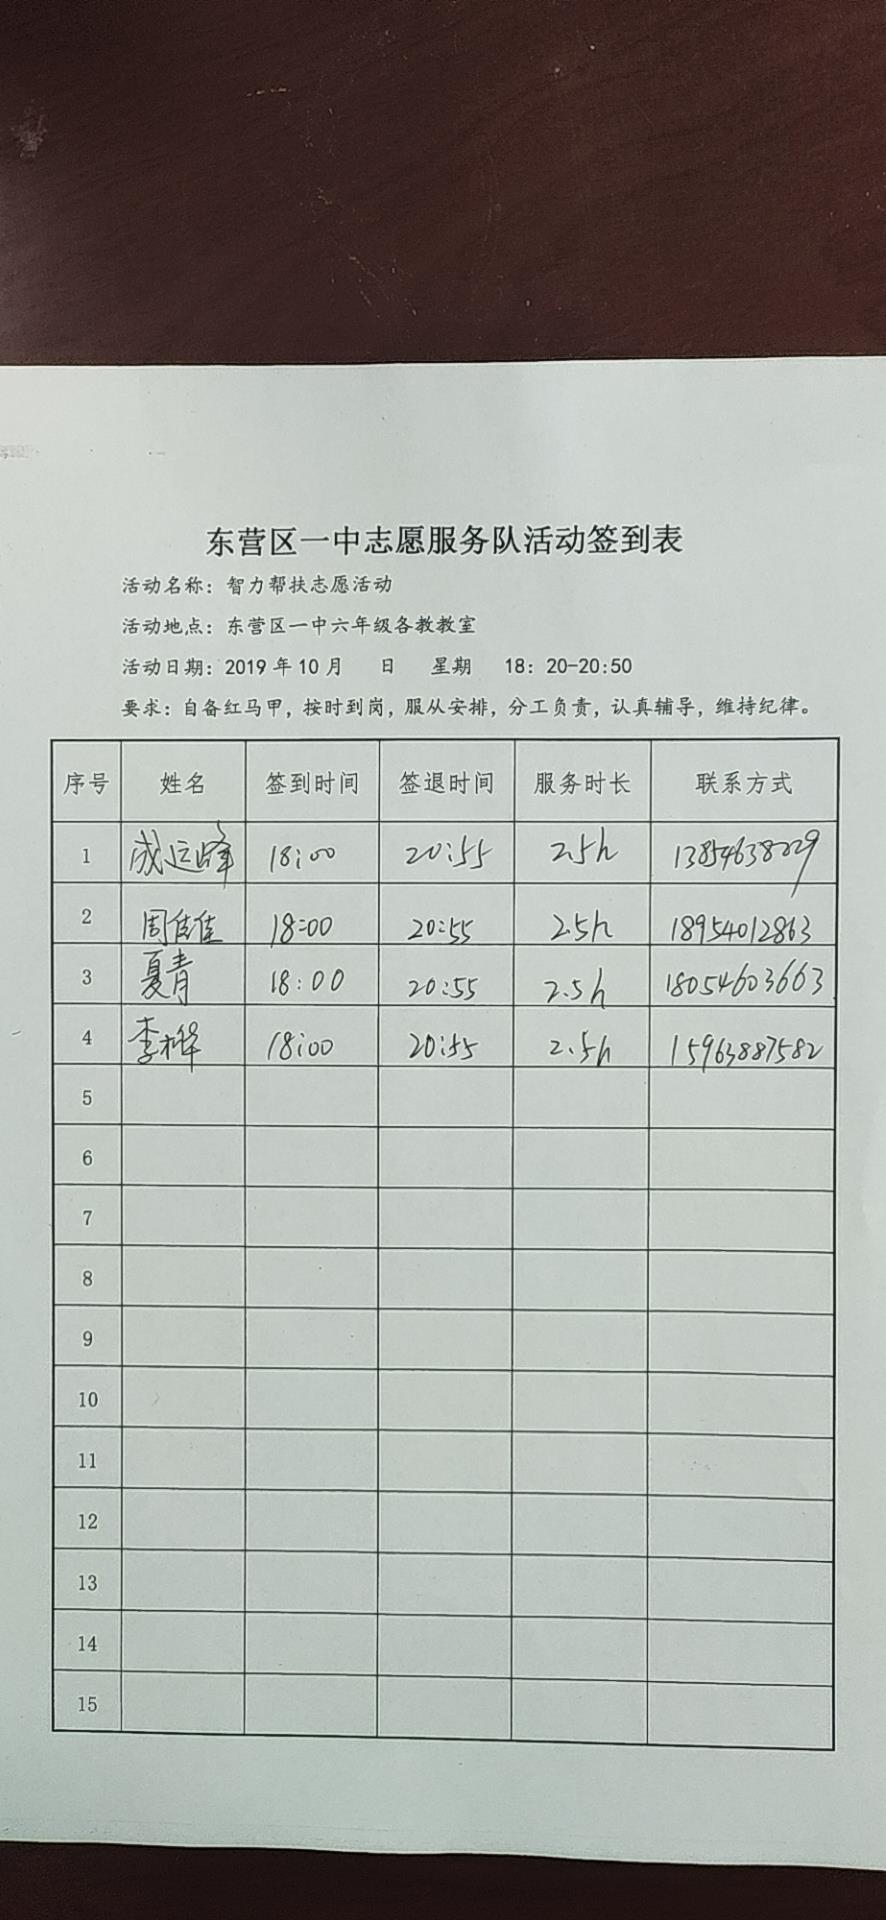 东营区一中志愿服务队活动签到表
活动名称：智力帮扶志愿活动
活动地点：东营区一中六年级各教教室
活动日期：2019年10月 日 星期 18：20-20:50
要求：自备红马甲，按时到岗，服从安排，分工负责，认真辅导，维持纪律。
序号 姓名 签到时间 签退时间 服务时长 联系方式
1 成运峰 18:00 20:55 2.5h
2 周佳佳 18:00 20:55 2.5h 18954012863
3 夏青 18:00 20:55 2.5h 18054603663
4 李桦 18:00 20:55 2.5h 15963887582
5
6
7
8
9
10
11
12
13
14
15